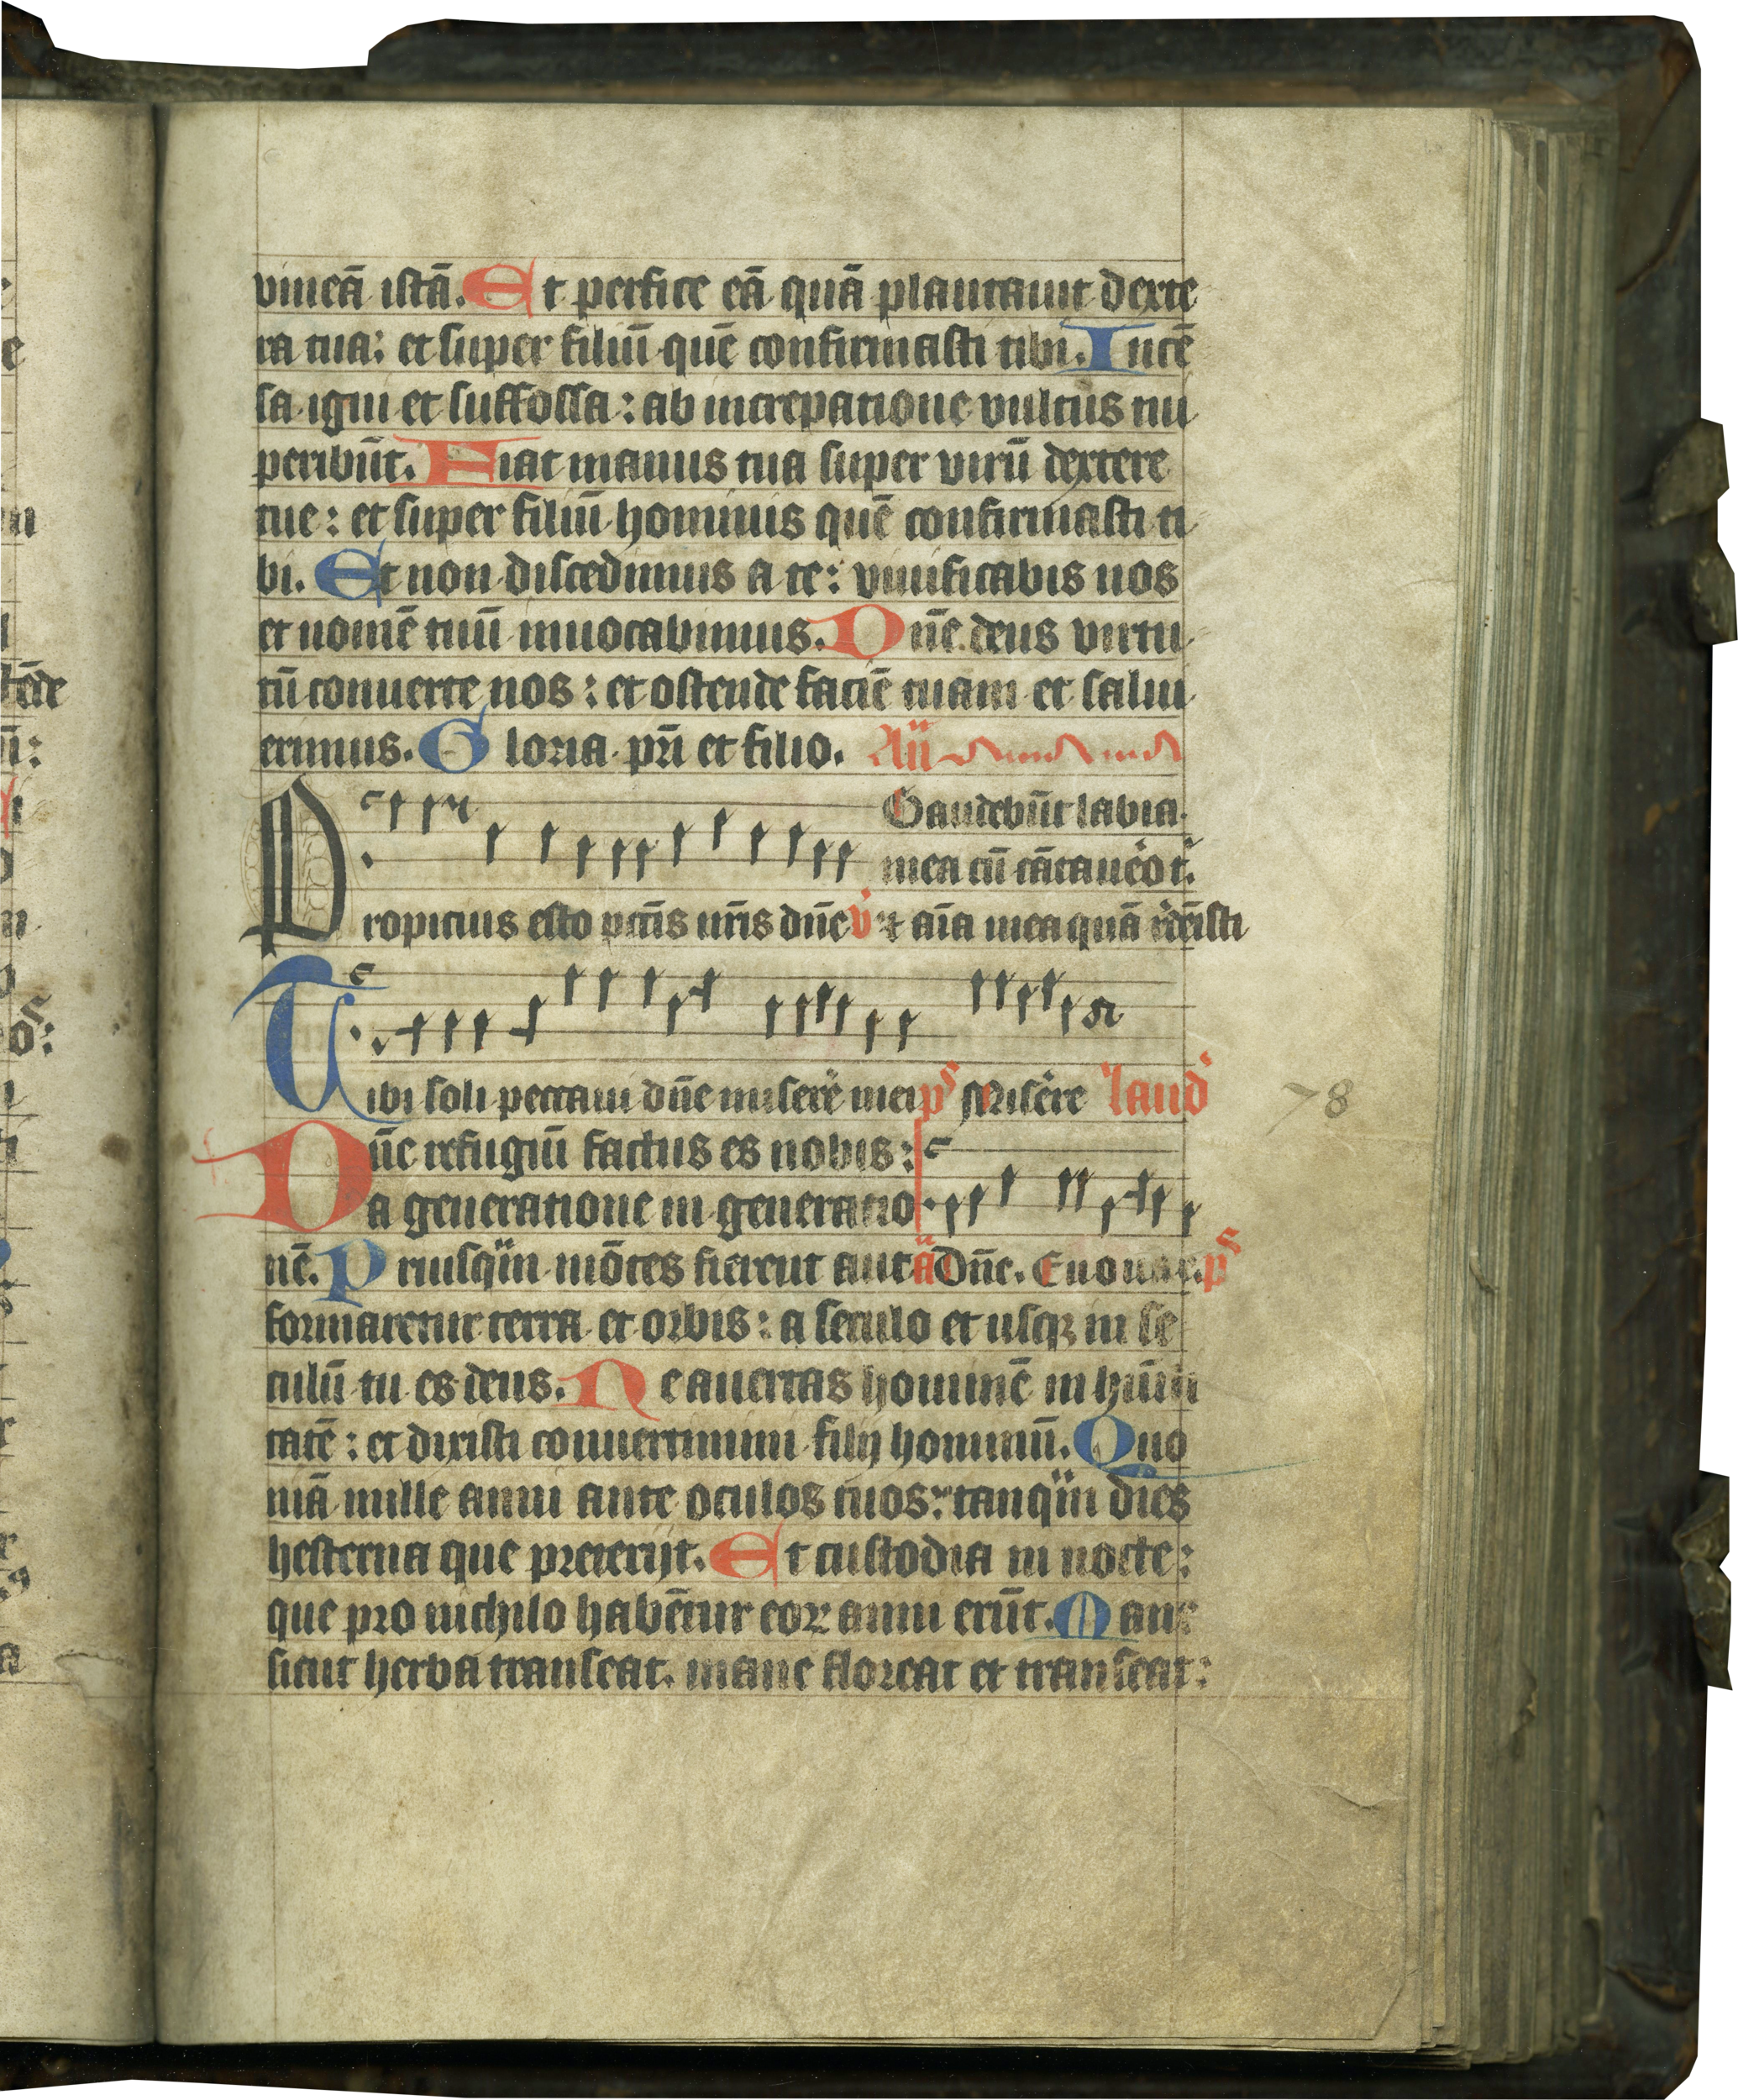 vineā istā. Et perfice eā quā plantauit dexte
ra tua: et super filiū quē confirmasti tibi. Incē
sa igni et suffossa: ab increpatione vultus tui
peribūt. Fiat manus tua super virū dextere
tue: et super filiū hominis quē confirmasti ti
bi. Et non discedimus a te: viuificabis nos
et nomē tuū inuocabimus. Dn̄e deus virtu
tū conuerte nos: et ostende faciē tuam et salui
erimus. Gloria pr̄i et filio. An̄
Gaudebūt labia
mea cū cātauēo t.
Propicius esto pctīs nr̄is dn̄e v̇ Et aīa mea quā rdēisti
Tibi soli peccaui dn̄e miserē mei ps Miserē laud
Dn̄e refugiū factus es nobis:
a generatione in generatio
nē. Priusq̈m mōtes fierent aut a Dn̄e. Euouae. ps
formaretur terra et orbis: a seculo et usqꝫ in se
culū tu es deus. Ne auertas hominē in hūili
tatē: et dixisti conuertimini filij hominū. Quo
niā mille anni ante oculos tuos: tanq̈m dies
hesterna que preterijt. Et custodia in nocte:
que pro nichilo habētur eoꝝ anni erūt. Mane
sicut herba transeat. mane floreat et transeat:
78